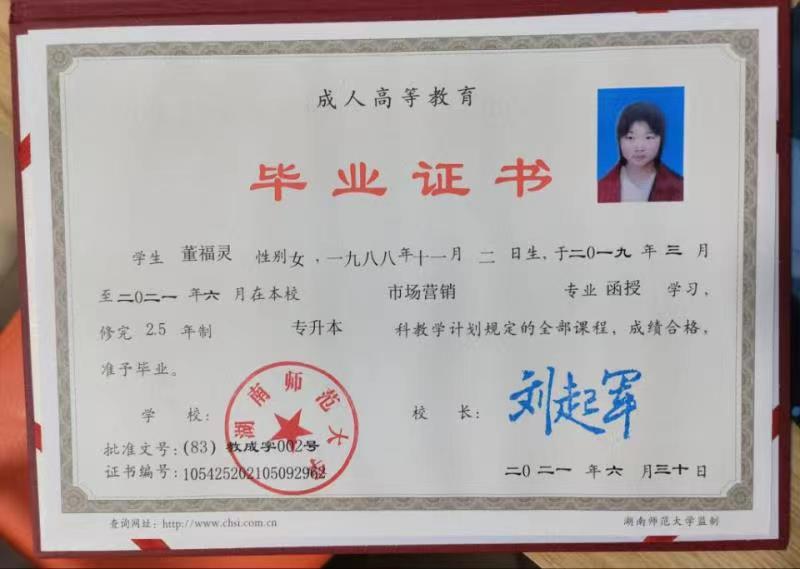 成人高等教育
毕业证书
学生 董福灵 性别女，一九八八年十一月 二 日生，于二〇一九 年 三 月
至二〇二一 年 六 月在本校 市场营销 专业 函授 学习，
修完 2.5 年制 专升本 科教学计划规定的全部课程，成绩合格，
准予毕业。
学 校： 校 长： 刘起军
湖南师范大学
批准文号：(83) 教成字002号
证书编号：105425202105092962 二〇二一 年 六 月三十日
查询网址：http://www.chsi.com.cn 湖南师范大学监制